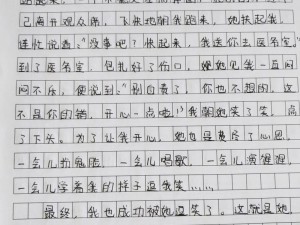 己离开观众席，飞快地朝我跑来，她扶起我，
连忙说着："没事吧？快起来，我送你去医务室。"
到了医务室，包扎好了伤口，她见我一直闷
闷不乐，便说到："别自责了，你也不想的，这
不是你的错，开心一点啦！"我朝她笑了笑，点
了下头。为了让我开心，她也是费尽了心思，
一会儿扮鬼脸，一会儿唱歌，一会儿演猩猩，
一会儿学着我的样子逗我笑……
最终，我也成功被她逗笑了。这就是她，